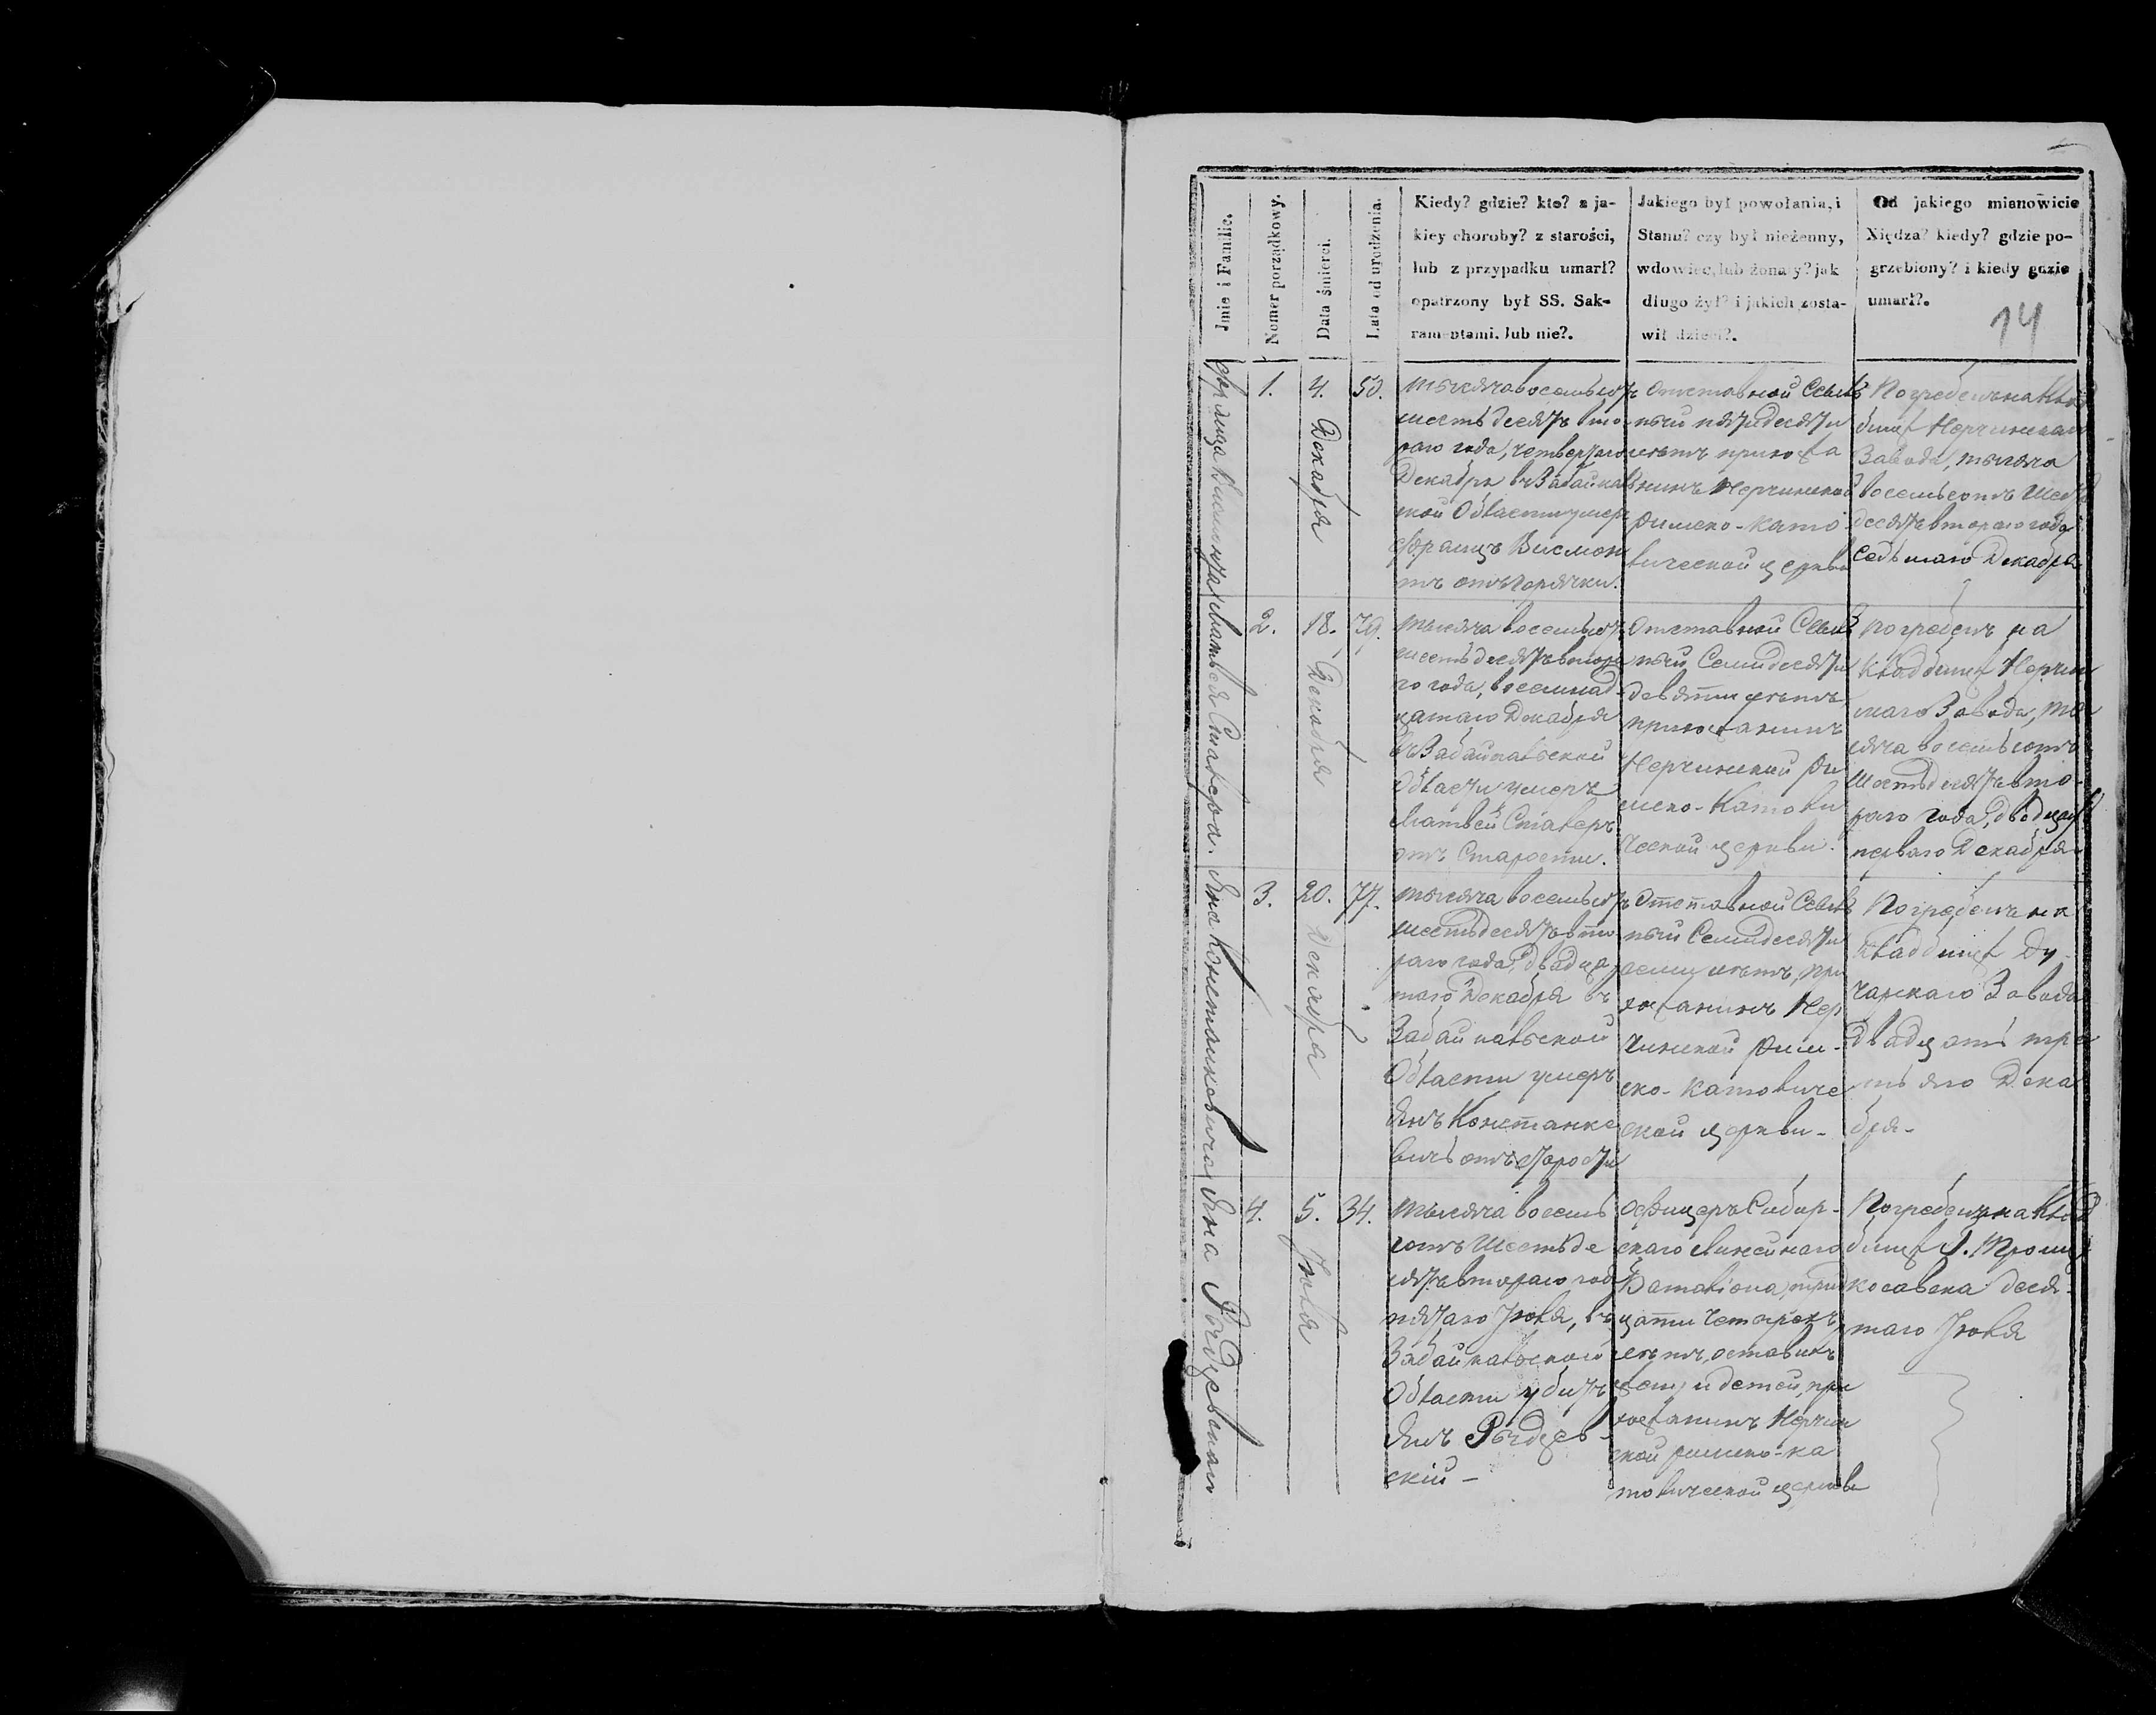 Imie i Familie.
Nomer porządkowy.
Data śmierci.
Lata od urodzenia.
Kiedy? gdzie? kto? z ja-
kiey choroby? z starości,
lub z przypadku umarł?
opatrzony był SS. Sak-
ramentami. lub nie?.
Jakiego był powołania, i
Stanu? czy był nieżenny,
wdowiec, lub żonaty? jak
długo żył? i jakich zosta-
wił dzieci?.
Od jakiego mianowicie
Xiędza? kiedy? gdzie po-
grzebiony? i kiedy gdzie
umarł?.
14
Франца
1.
4. Декабря
50.
тысяча восемьсотъ
шестьдесятъ вто
раго года, четвертаго
Декабря въ Забайкаль
ской Области умеръ
Францъ Висмон
тъ отъ горячки.
Отставной Ссыль
ный пятидесяти
лѣтъ прихожа
нинъ Нерчинской
римско-като
лической церкви
Погребенъ на клад
бищѣ Нерчинскаго
Завода, тысяча
восемьсотъ шесть
десятъ втораго года
седьмаго Декабря
Матвея Сталера.
2.
18. Декабря
79.
тысяча восемьсотъ
шестьдесятъ втора
го года, восемнад
цатаго Декабря
въ Забайкальской
Области умеръ
Матвей Сталеръ
отъ Старости.
Отставной Ссыль
ный Семидесяти
девяти лѣтъ
прихожанинъ
Нерчинской Ри
мско-Католи
ческой церкви.
погребенъ на
кладбищѣ Нерчин
скаго Завода, ты
сяча восемьсотъ
шестьдесятъ вто-
раго года, двадцать
перваго Декабря
Яна
3.
20. Декабря
77.
тысяча восемьсотъ
шестьдесятъ вто
раго года, двадца
таго Декабря въ
Забайкальской
Области умеръ
Янъ
отъ старости
Отставной Ссыль
ный Семидесяти
семи лѣтъ, при
хожанинъ Нер
чинской Рим-
ско-католиче
ской церкви-
Погребенъ на
кладбищѣ Ду-
чарскаго Завода
двадцать тре
тьяго Дека
бря-
Яна
4.
5. Іюля
34.
тысяча восемь
сотъ Шестьде
сятъ втораго года
пятаго Іюля, въ
Забайкальской
Области убитъ
Янъ
скій-
Офицеръ Сибир-
скаго Линейнаго
Баталіона, трид
цати четырехъ
лѣтъ, оставилъ
жену и детей, при
хожанинъ Нерчин
ской римско-ка
толической церкви
Погребенъ на клад
бищѣ
деся-
таго Іюля